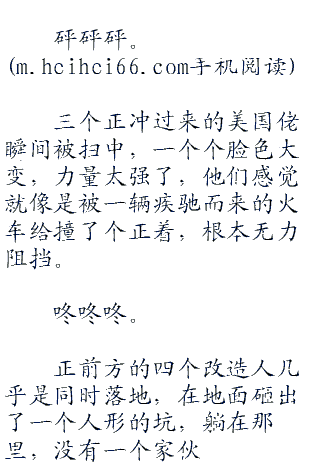 砰砰砰。
(m.hcihci66.com手机阅读)
三个正冲过来的美国佬
瞬间被扫中，一个个脸色大
变，力量太强了，他们感觉
就像是被一辆疾驰而来的火
车给撞了个正着，根本无力
阻挡。
咚咚咚。
正前方的四个改造人几
乎是同时落地，在地面砸出
了一个人形的坑，躺在那
里，没有一个家伙